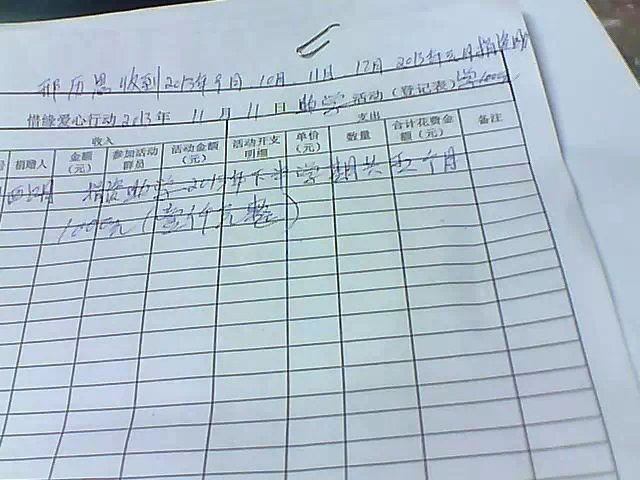 邢历思收到2013年9月 10月 11月 12月 2013年元月捐资助
学1000元
惜缘爱心行动2013年 11月11日助学活动(登记表)
收入 支出
捐赠人 金额(元) 参加活动群员 活动金额(元) 活动开支明细 单价(元) 数量 合计花费金额(元) 备注
捐资助学2013年下半学期共五个月
1000元(壹仟元整)